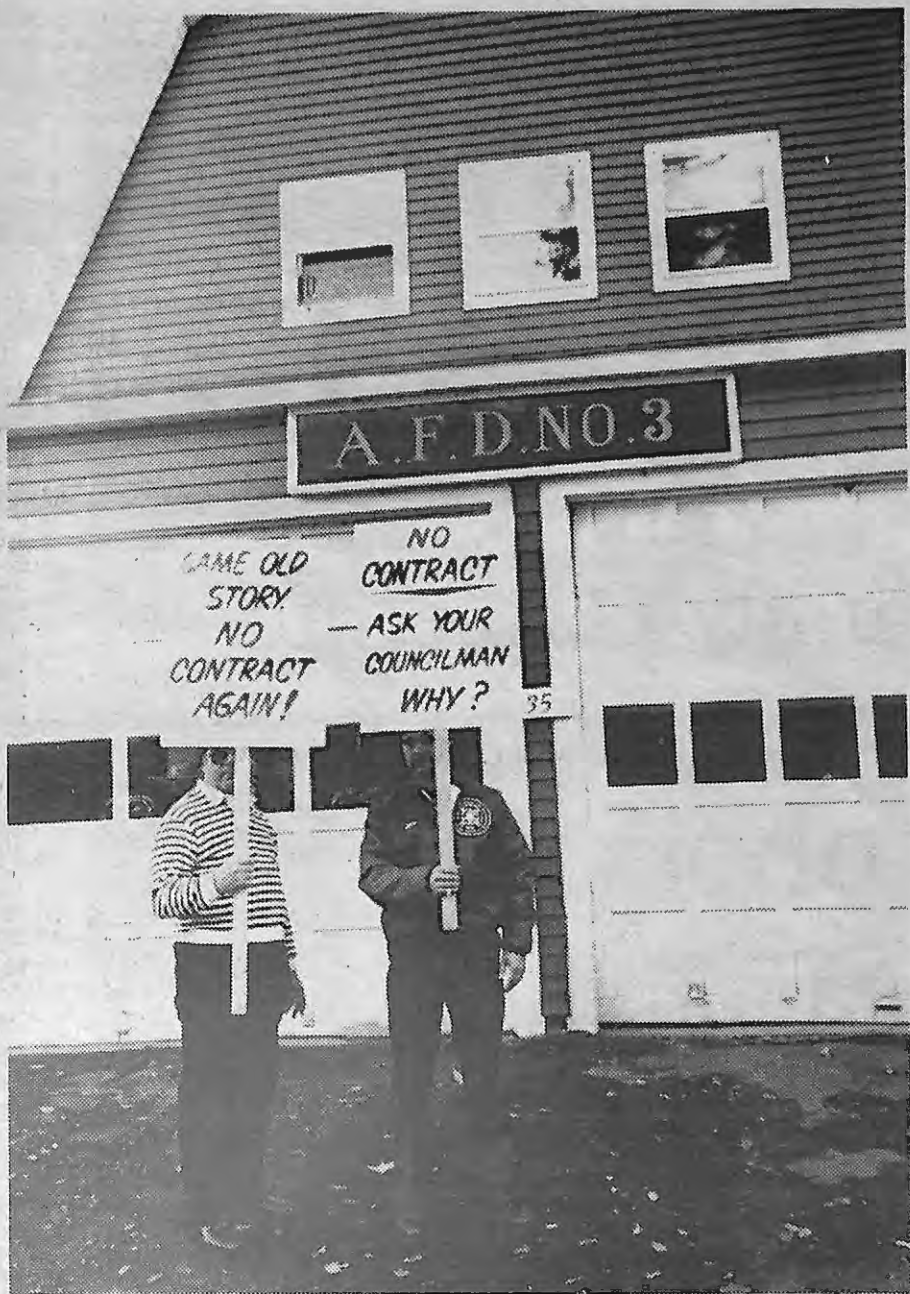 A.F.D.NO.3
SAME OLD
STORY.
NO
CONTRACT
AGAIN!
NO
CONTRACT
— ASK YOUR
COUNCILMAN
WHY?
35